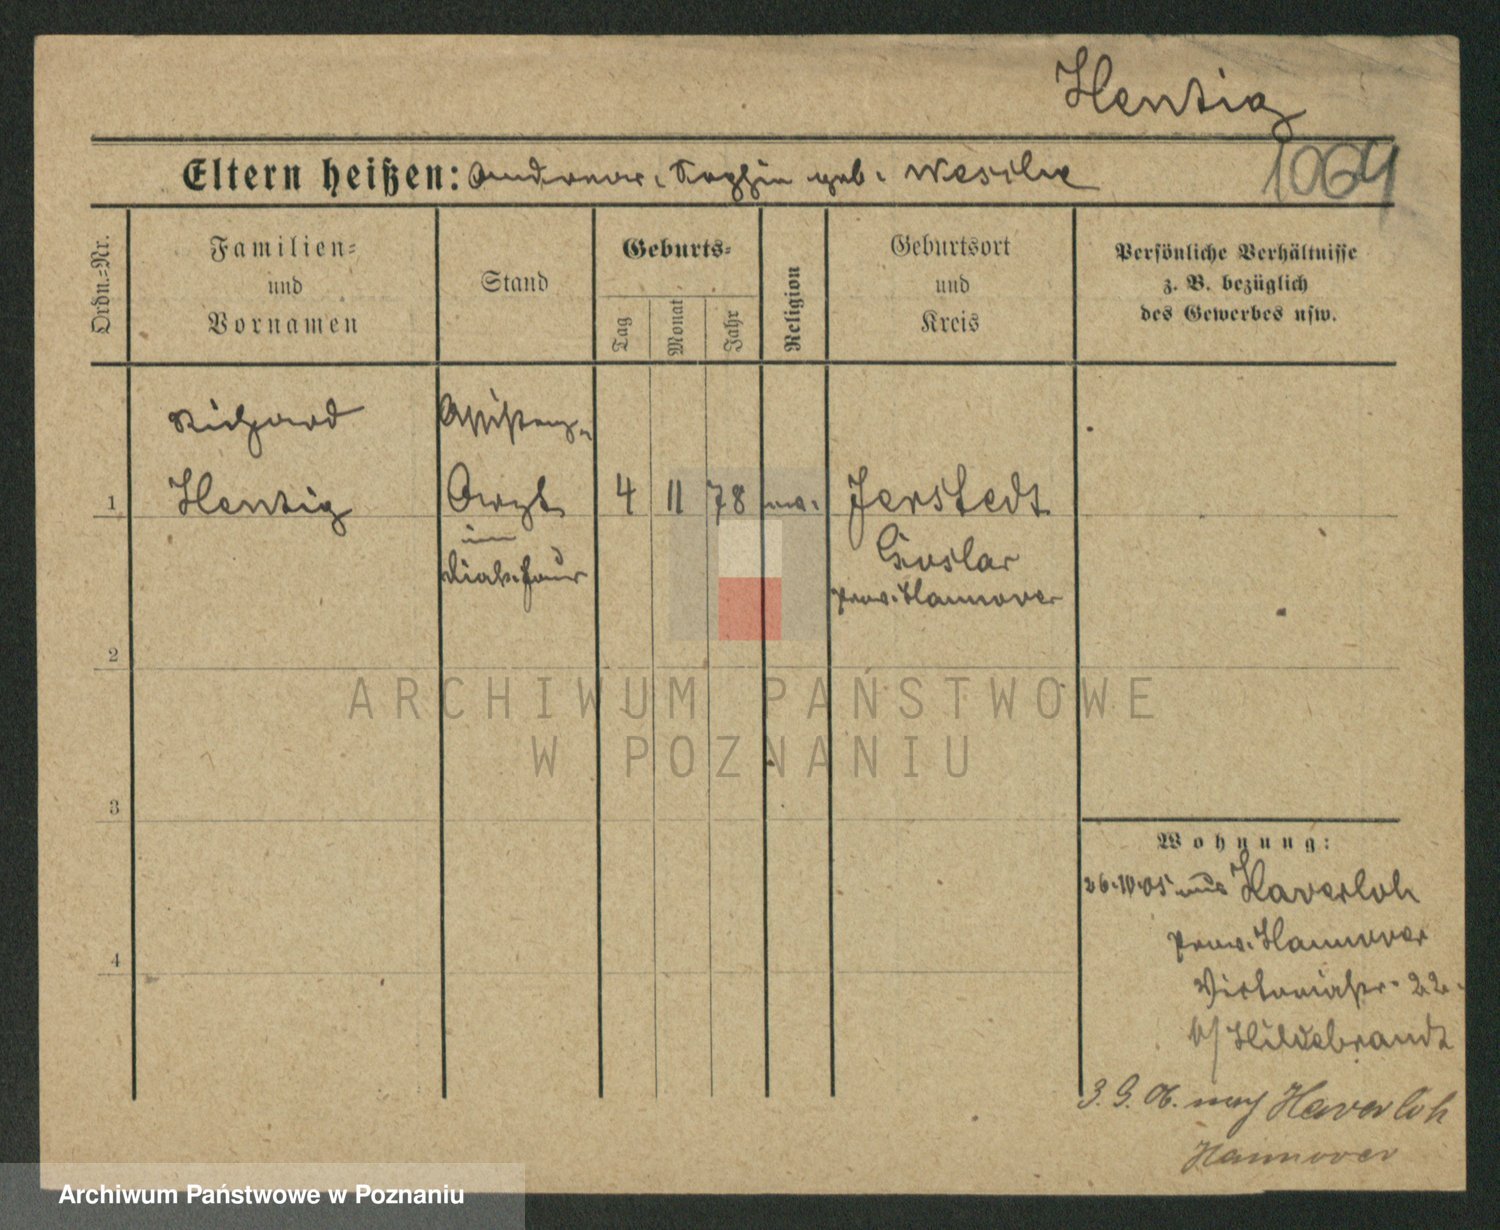 Hentig
1064
Eltern heißen: Andreas. Sophie geb.
Ordn.-Nr.
Familien-
und
Vornamen
Stand
Geburts-
Tag
Monat
Jahr
Religion
Geburtsort
und
Kreis
Persönliche Verhältnisse
z. B. bezüglich
des Gewerbes usw.
Richard
Hentig
Assistenz-
Arzt
im
1
4 11 78 ev.
Jerstedt
Goslar
Prov. Hannover
2
3
4
Wohnung:
26.10.05 aus Haverloh
Prov. Hannover
Viktoriastr. 22.
b/ Hildebrandt
3. 9. 06. nach Haverloh
Hannover
ARCHIWUM PAŃSTWOWE
W POZNANIU
Archiwum Państwowe w Poznaniu